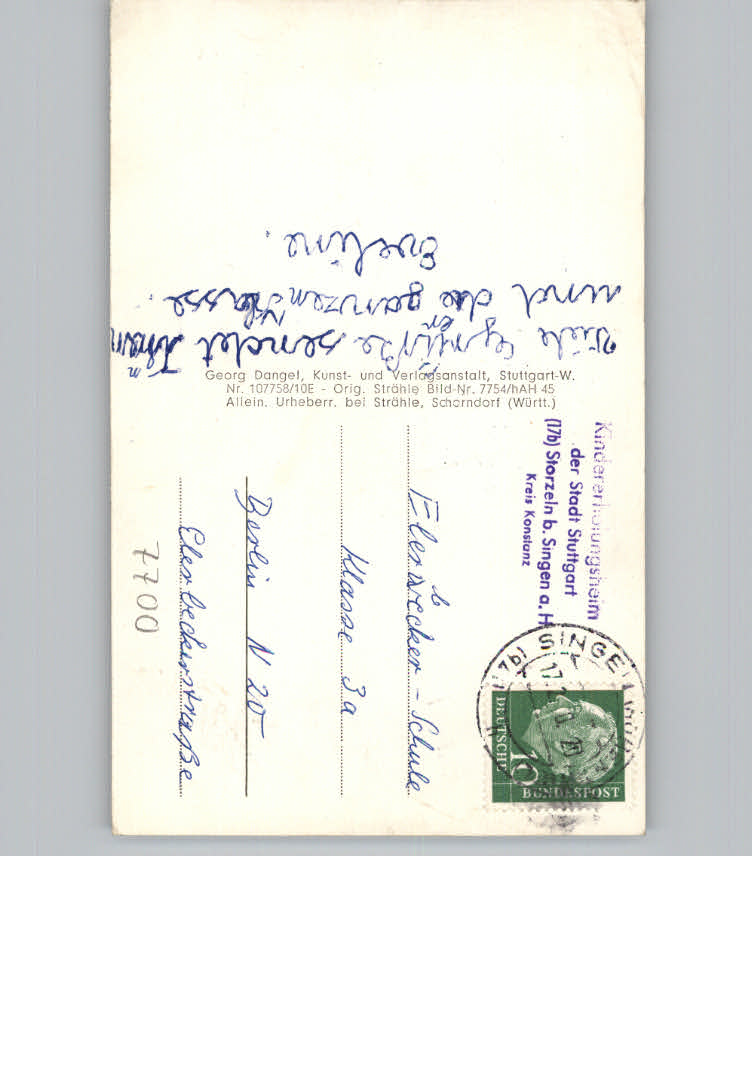 Viele Grüße sendet Ihnen
und die ganzen Klasse.
Eveline.
Georg Dangel, Kunst- und Verlagsanstalt, Stuttgart-W.
Nr. 107758/10E - Orig. Strähle Bild-Nr. 7754/hAH 45
Allein. Urheberr. bei Strähle, Schorndorf (Württ.)
Kindererholungsheim
der Stadt Stuttgart
(17b) Storzeln b. Singen a. H
Kreis Konstanz
(17b) SINGEN
DEUTSCHE
10
BUNDESPOST
Schule
Klasse 3a
Berlin N 20
7700